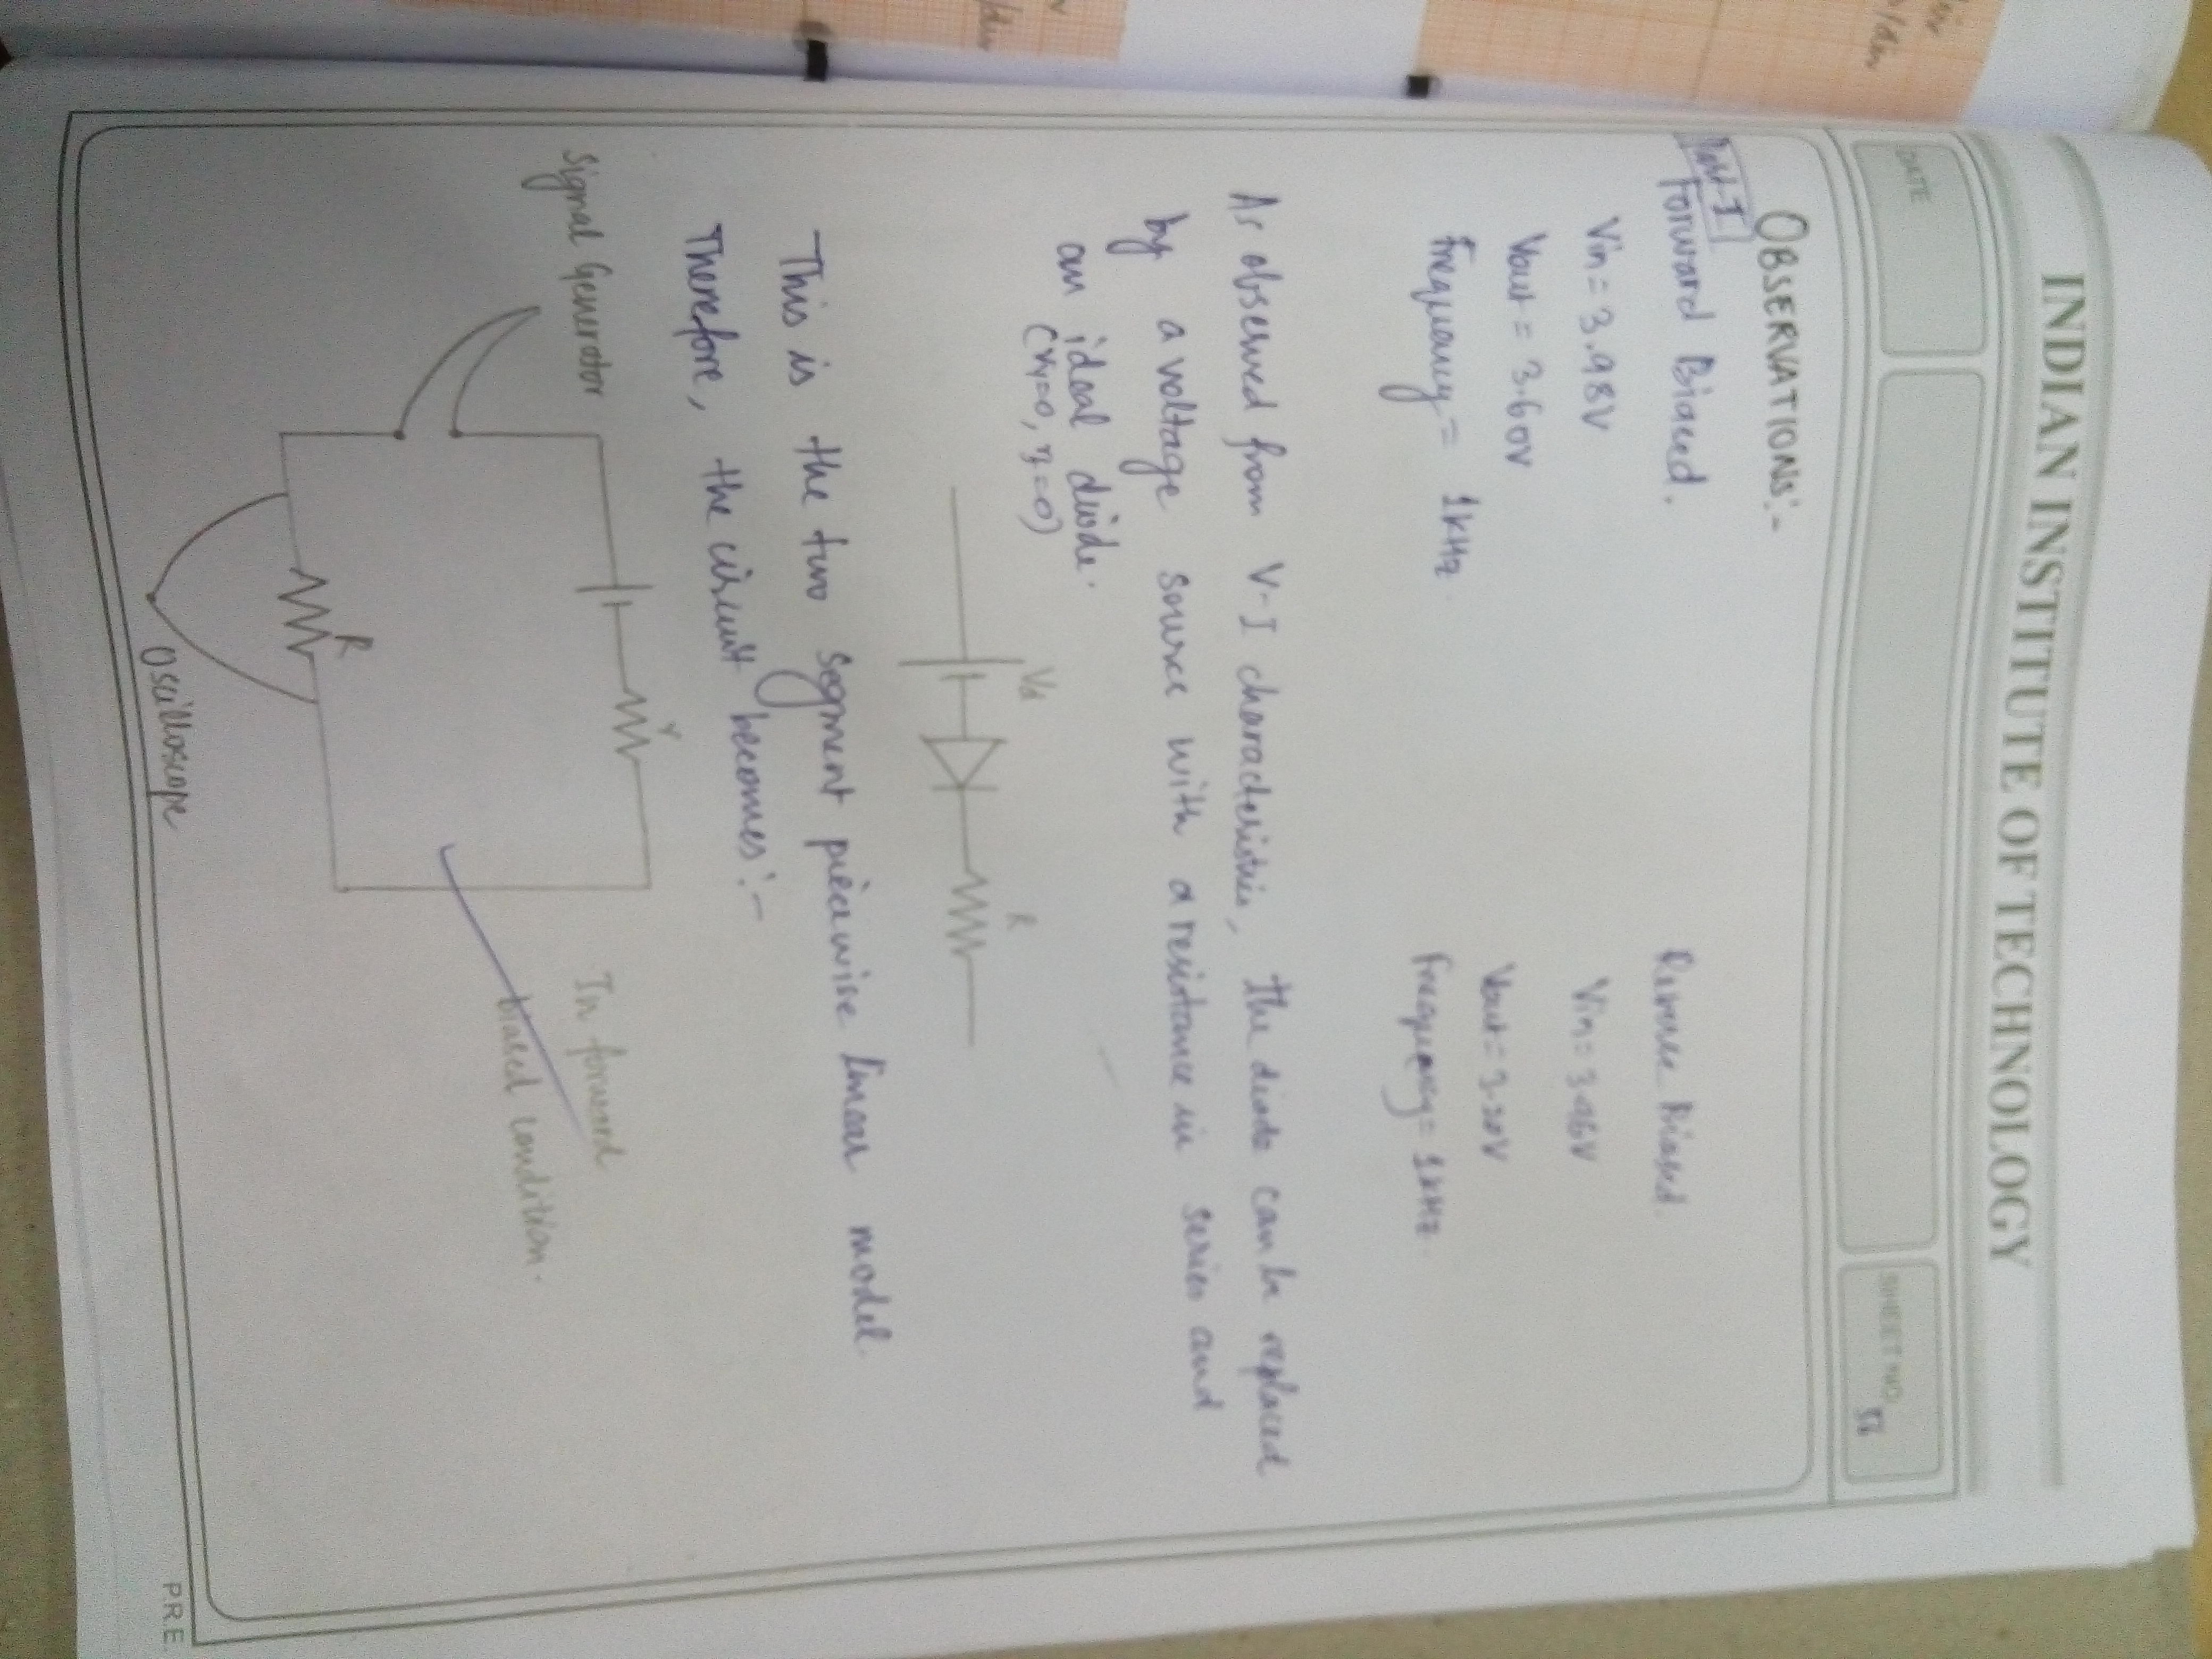 INDIAN INSTITUTE OF TECHNOLOGY
DATE
SHEET NO.
OBSERVATIONS:-
Part-I
Forward Biased.
Vin = 3.98V
Vout = 3.60V
Frequency = 1kHz
Reverse Biased.
Vin = 3.96V
Vout = 3.20V
Frequency = 1kHz.
As observed from V-I characteristic, the diode can be replaced
by a voltage source with a resistance in series and
an ideal diode.
Vd
R
This is the two segment piecewise linear model.
Therefore, the circuit becomes:-
r
Signal Generator
In forward
biased condition.
R
Oscilloscope
P.R.E.
/div
/div